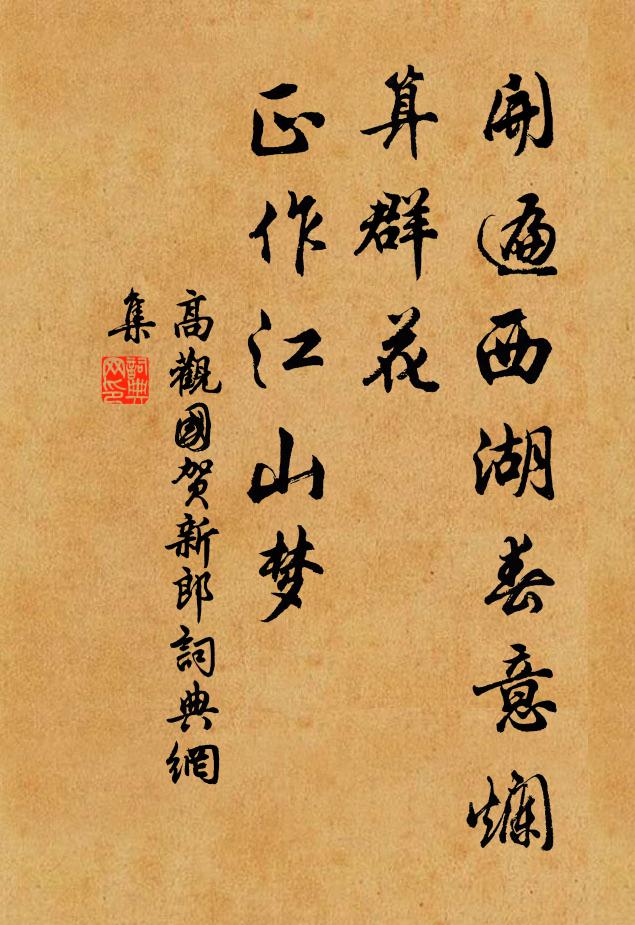 開遍西湖春意爛
算群花
正作江山梦
高觀國贺新郎詞典網
集
詞典
网印